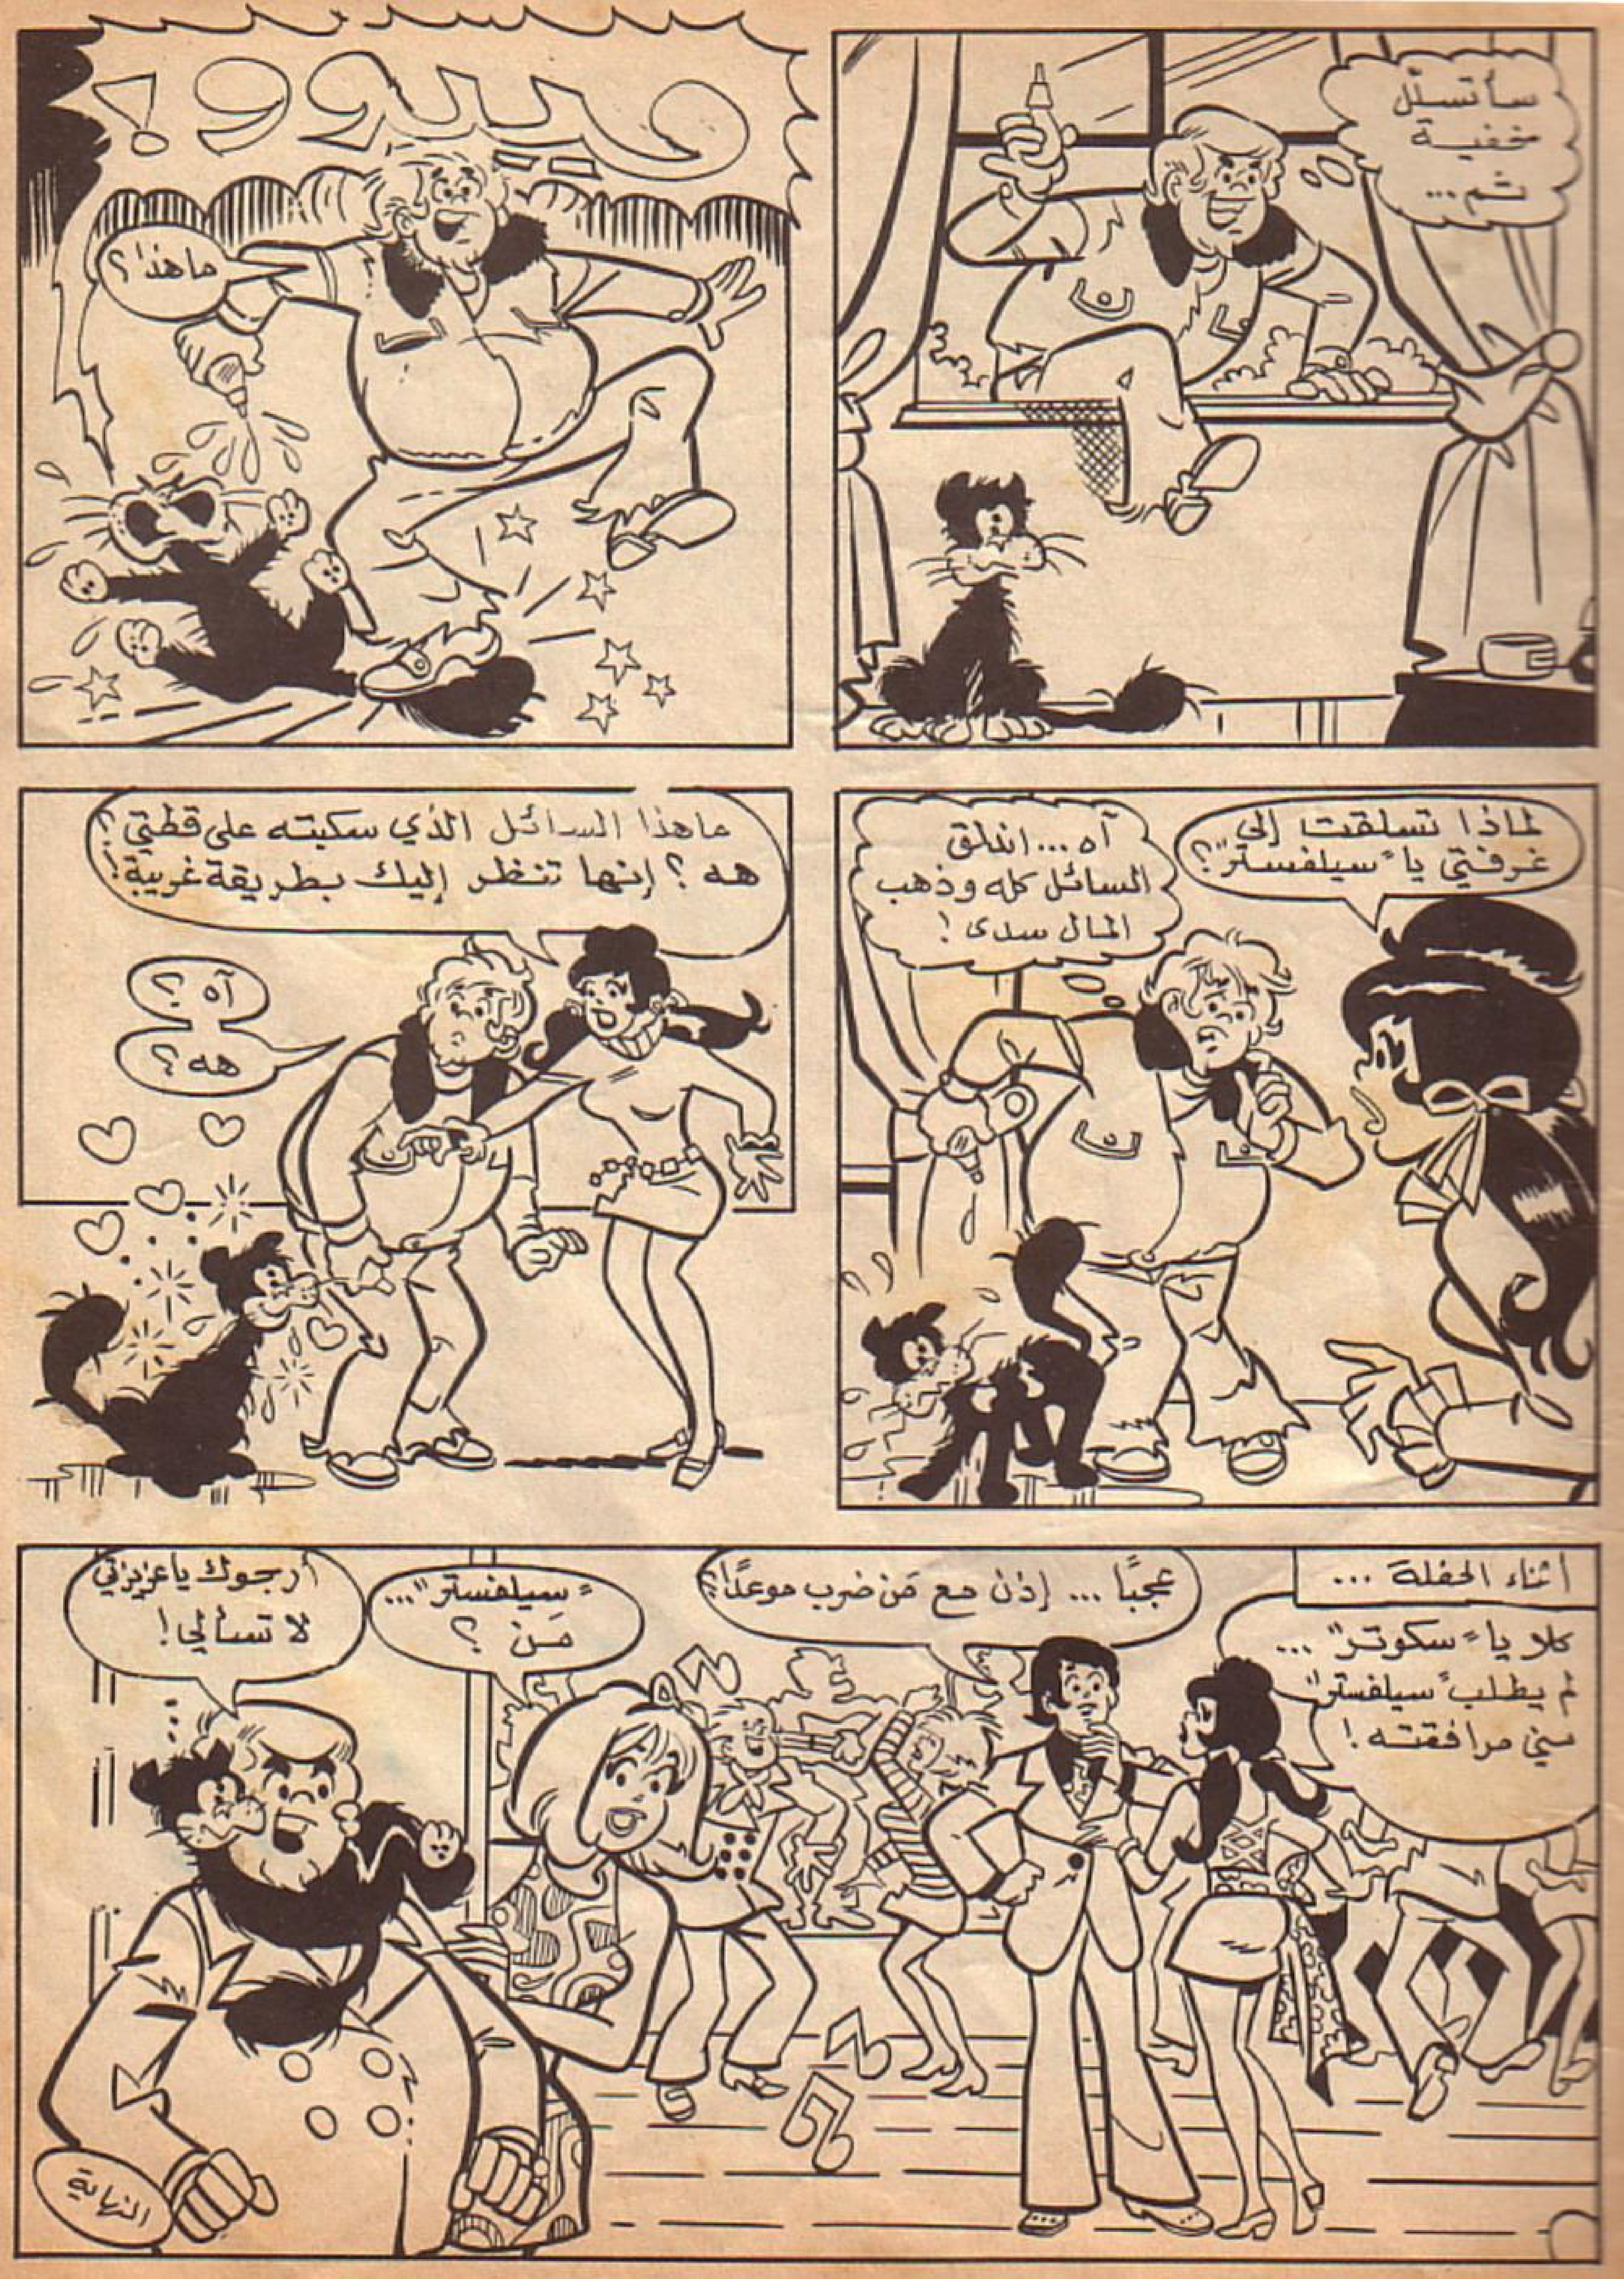 سأتسلّل
خفية
ثم ...
مييوو!
ما هذا؟
لماذا تسلقت إلى
غرفتي يا "سيلفستر"؟
آه ... اندلق
السائل كله وذهب
المال سدى!
ما هذا السائل الذي سكبته على قطتي؟
هه؟ إنها تنظر إليك بطريقة غريبة!
آه؟
هه؟
أثناء الحفلة ...
كلا يا "سكوتر" ...
لم يطلب "سيلفستر"
مني مرافقته!
عجبًا ... إذن مع مَن ضرب موعدًا؟
"سيلفستر" ...
مَن؟
أرجوك يا عزيزتي
لا تسألي!
النهاية